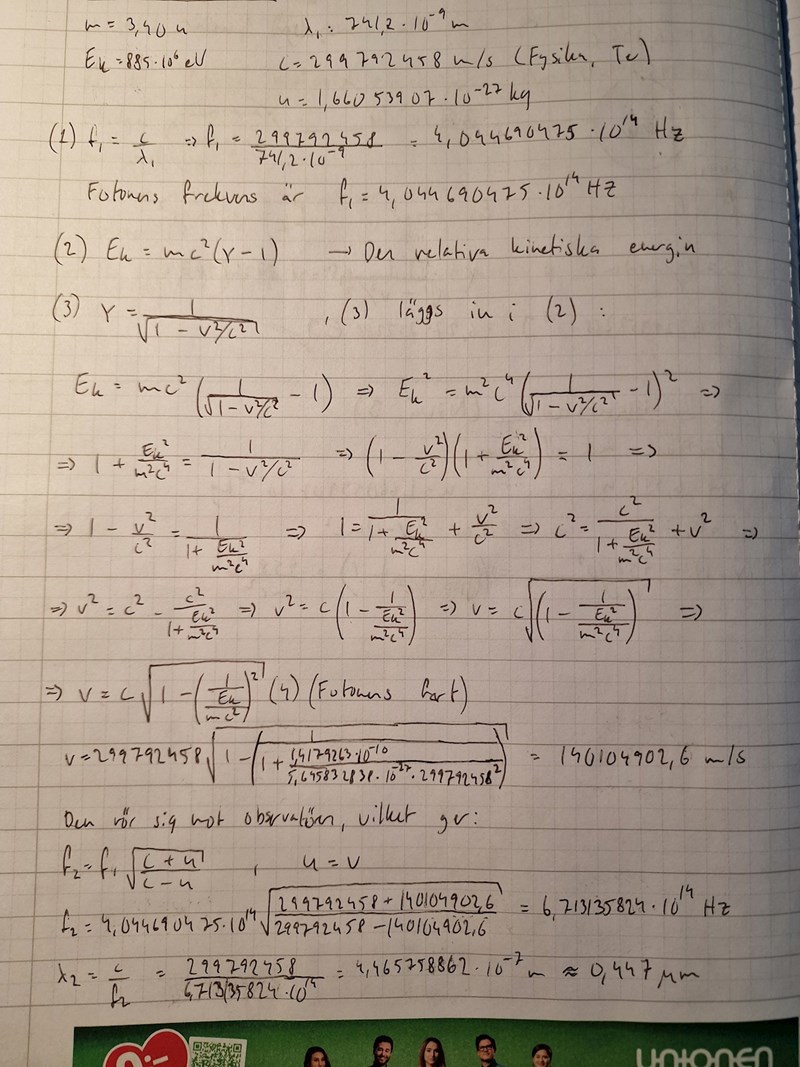 m = 3,40 u λ₁ = 741,2 · 10⁻⁹ m
Eₖ = 885 · 10⁶ eV c = 299792458 m/s (Fysika, Te)
u = 1,66053907 · 10⁻²⁷ kg
(1) f₁ = c/λ₁ ⇒ f₁ = 299792458/(741,2 · 10⁻⁹) = 4,044690475 · 10¹⁴ Hz
Fotonens frekvens är f₁ = 4,044690475 · 10¹⁴ Hz
(2) Eₖ = mc²(γ - 1) → Den relativa kinetiska energin
(3) γ = 1/√(1 - v²/c²) , (3) läggs in i (2) :
Eₖ = mc² (1/√(1 - v²/c²) - 1) ⇒ Eₖ² = m²c⁴ (1/√(1 - v²/c²) - 1)² ⇒
⇒ 1 + Eₖ²/(m²c⁴) = 1/(1 - v²/c²) ⇒ (1 - v²/c²)(1 + Eₖ²/(m²c⁴)) = 1 ⇒
⇒ 1 - v²/c² = 1/(1 + Eₖ²/(m²c⁴)) ⇒ 1 = 1/(1 + Eₖ²/(m²c⁴)) + v²/c² ⇒ c² = c²/(1 + Eₖ²/(m²c⁴)) + v² ⇒
⇒ v² = c² - c²/(1 + Eₖ²/(m²c⁴)) ⇒ v² = c (1 - 1/(Eₖ²/(m²c⁴))) ⇒ v = c√(1 - 1/(Eₖ²/(m²c⁴))) ⇒
⇒ v = c√(1 - (1/(Eₖ/(mc²)))²) (4) (Fotonens fart)
v = 299792458√(1 - (1/(1 + 1,4179263 · 10⁻¹⁰/(5,645832838 · 10⁻²⁷ · 299792458²)))) = 140104902,6 m/s
Den rör sig mot observatören, vilket ger:
f₂ = f₁√((c + u)/(c - u)) , u = v
f₂ = 4,044690475 · 10¹⁴√((299792458 + 140104902,6)/(299792458 - 140104902,6)) = 6,713135824 · 10¹⁴ Hz
λ₂ = c/f₂ = 299792458/(6,713135824 · 10¹⁴) = 4,465758862 · 10⁻⁷ m ≈ 0,447 μm
unionen